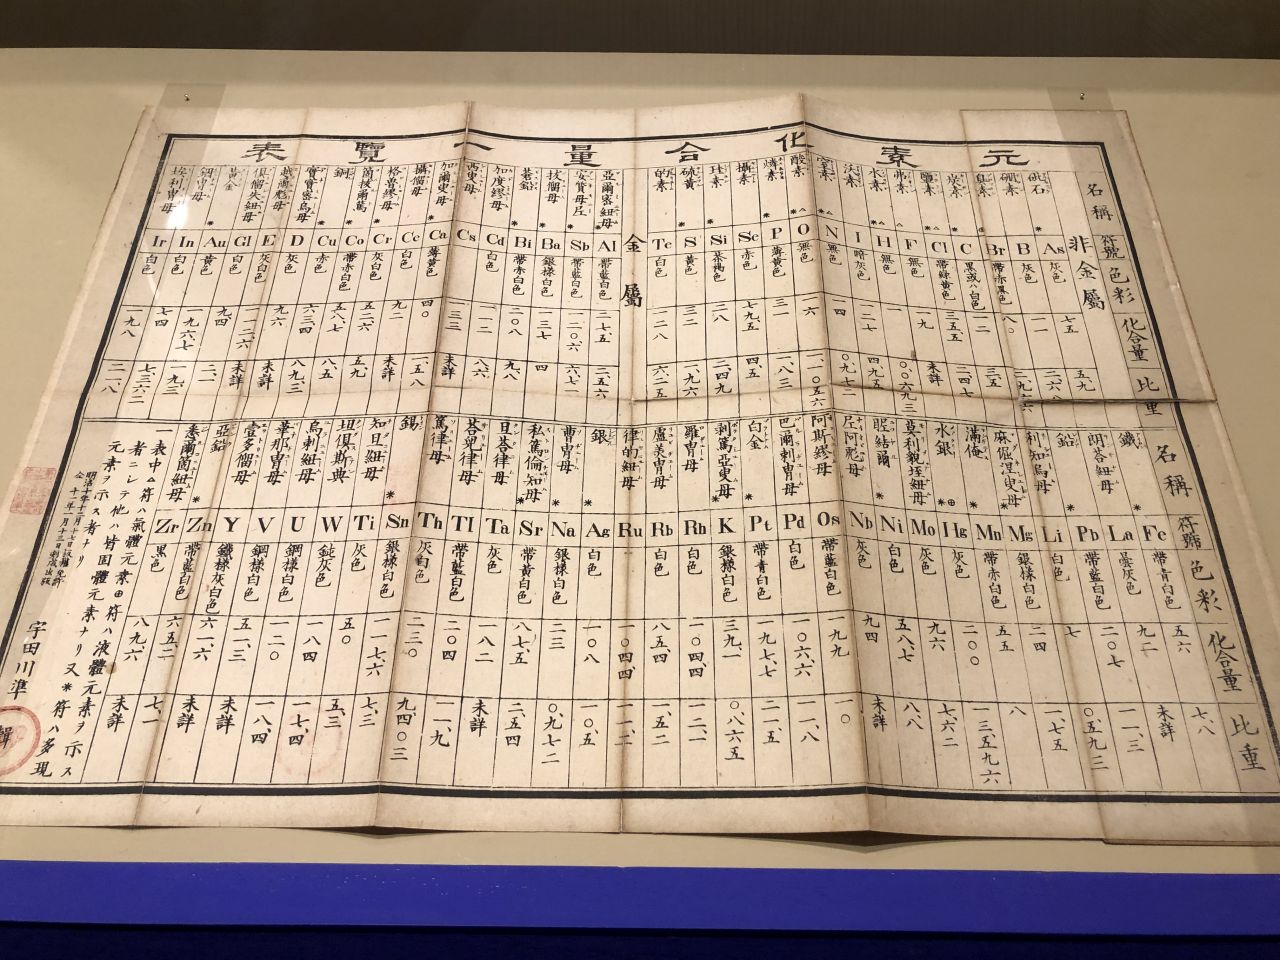 元素化合量一覽表
名稱 符號 色彩 化合量 比重
非金屬
砒石 As 灰色 七五 五、九
硼素 B 灰色 一一 二、六八
臭素 Br 帶赤黑色 八〇 二、九六六
炭素 C 黑或ハ白色 一二 三、五
鹽素 Cl 帶綠黃色 三五、五 二、四七
弗素 F 無色 一九 未詳
水素 H 無色 一 〇、〇六九三
沃素 I 暗灰色 一二七 四、九五
窒素 N 無色 一四 〇、九七二
酸素 O 無色 一六 一、一〇五六
燐素 P 薄黃色 三一 一、八三
Se 赤色 七九、五 四、五
珪素 Si 茶褐色 二八 二、四九
硫黃 S 黃色 三二 一、九六
的素 Te 白色 一二八 六、二五
金屬
亞爾密紐母 Al 帶藍白色 二七、五 二、五六
安質母尼 Sb 帶藍白色 一二〇、六 六、七一
拔㗚母 Ba 銀樣白色 一三七 四
蒼鉛 Bi 帶赤白色 二〇八 九、八
加度繆母 Cd 白色 一一二 八、六
西叟母 Cs 一三三 未詳
加爾叟母 Ca 薄黃色 四〇 一、五八
Ce 白色 九二 未詳
格魯繆母 Cr 灰白色 五二、六 五、九
箇拔爾篤 Co 帶赤白色 五八、七 八、五
銅 Cu 赤色 六三、四 八、九三
D 灰色 九六 未詳
E 灰白色 一一二、六 未詳
Gl 白色 九、四 二、一
黃金 Au 黃色 一九六、七 一九、三
In 白色 七四 七、三六二
Ir 白色 一九八 二一、八
名稱 符號 色彩 化合量 比重
鐵 Fe 帶青白色 五六 七、八
朗荅紐母 La 曇灰色 九二 未詳
鉛 Pb 帶藍白色 二〇七 一一、三
利知烏母 Li 白色 七 〇、五九三
麻倔涅叟母 Mg 銀樣白色 二四 一、七五
滿俺 Mn 帶赤白色 五五 八
水銀 Hg 灰色 二〇〇 一三、五九六
莫利貌垤紐母 Mo 灰色 九六 七、六二
Ni 白色 五八、七 八、八
尼阿彪母 Nb 灰色 九四 未詳
阿斯繆母 Os 帶藍白色 一九九 一〇
巴爾剌胄母 Pd 白色 一〇六、六 一一、八
白金 Pt 帶青白色 一九七、七 二一、五
剥篤亞叟母 K 銀樣白色 三九、一 〇、八六五
羅胄母 Rh 白色 一〇四、四 一二、一
盧美胄母 Rb 白色 八五、四 一、五二
律的紐母 Ru 白色 一〇四、四 一一、二
銀 Ag 白色 一〇八 一〇、五
曹胄母 Na 銀樣白色 二三 〇、九七二
私篤倫知母 Sr 帶黃白色 八七、五 二、五四
旦荅律母 Ta 灰色 一八二 未詳
荅兒律母 Tl 帶藍白色 二〇四 一一、九
篤律母 Th 灰白色
錫 Sn 銀樣白色
知且紐母 Ti 灰色 五〇 五、三
坦倶斯典 W 鈍灰色 一八四 一七、四
烏剌紐母 U 鋼樣白色 一二〇 一八、四
華那胄母 V 鋼樣白色 五一、三 未詳
壹多㗚母 Y 鐵樣灰白色 六一、六 未詳
亞鉛 Zn 帶藍白色 六五、二 七、一
悉爾箇紐母 Zr 黑色 八九、六 未詳
一表中△符ハ氣體元素⊕符ハ液體元素ヲ示ス
者ニシテ他ハ皆固體元素ナリ又＊符ハ多現
元素ヲ示ス者ナリ
宇田川準